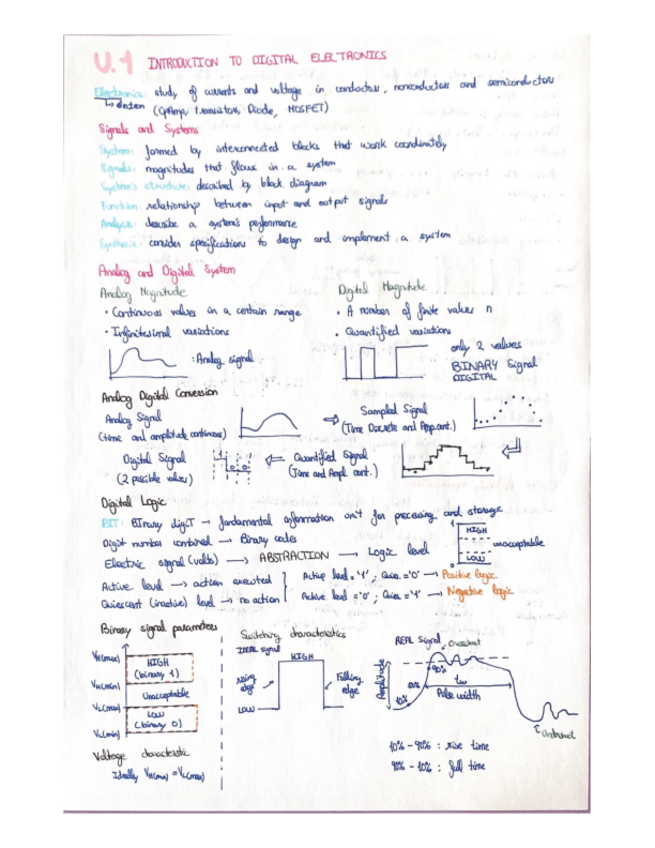 U.1 INTRODUCTION TO DIGITAL ELECTRONICS
Electronics: study of currents and voltage in conductors, nonconductors and semiconductors
↳ electron (OpAmp, transistors, Diode, MOSFET)
Signals and Systems
System: formed by interconnected blocks that work coordinately
Signals: magnitudes that flows in a system
System's structure: described by block diagram
Function: relationship between input and output signals
Analysis: describe a system's performance
Synthesis: consider specifications to design and implement a system
Analog and Digital System
Analog Magnitude
• Continuous values in a certain range
• Infinitesimal variations
: Analog signal
Digital Magnitude
• A number of finite values n
• Quantified variations
only 2 values
BINARY Signal
DIGITAL
Analog Digital Conversion
Analog Signal
(time and amplitude continuous)
⇒ Sampled Signal
(Time Discrete and App.cont.)
⇐ Quantified Signal
(Time and Ampl. cont.)
Digital Signal
(2 possible values)
Digital Logic
BIT: BInary digiT → fundamental information unit for processing and storage
Digit number combined → Binary codes
Electric signal (volts) → ABSTRACTION → Logic level
1 HIGH
unacceptable
LOW
0
Active level → action executed
Quiescent (inactive) level → no action
Active level = '1' ; Quies. = '0' → Positive logic
Active level = '0' ; Quies = '1' → Negative logic
Binary signal parameters
VH(max)
HIGH
(binary 1)
VH(min)
Unacceptable
VL(max)
LOW
(binary 0)
VL(min)
Voltage characteristic
Ideally VH(min) = VL(max)
Switching characteristics
IDEAL signal
HIGH
rising edge
Falling edge
LOW
REAL Signal
Overshoot
Amplitude
90%
50%
10%
tw
Pulse width
Undershoot
10% - 90% : rise time
90% - 10% : fall time